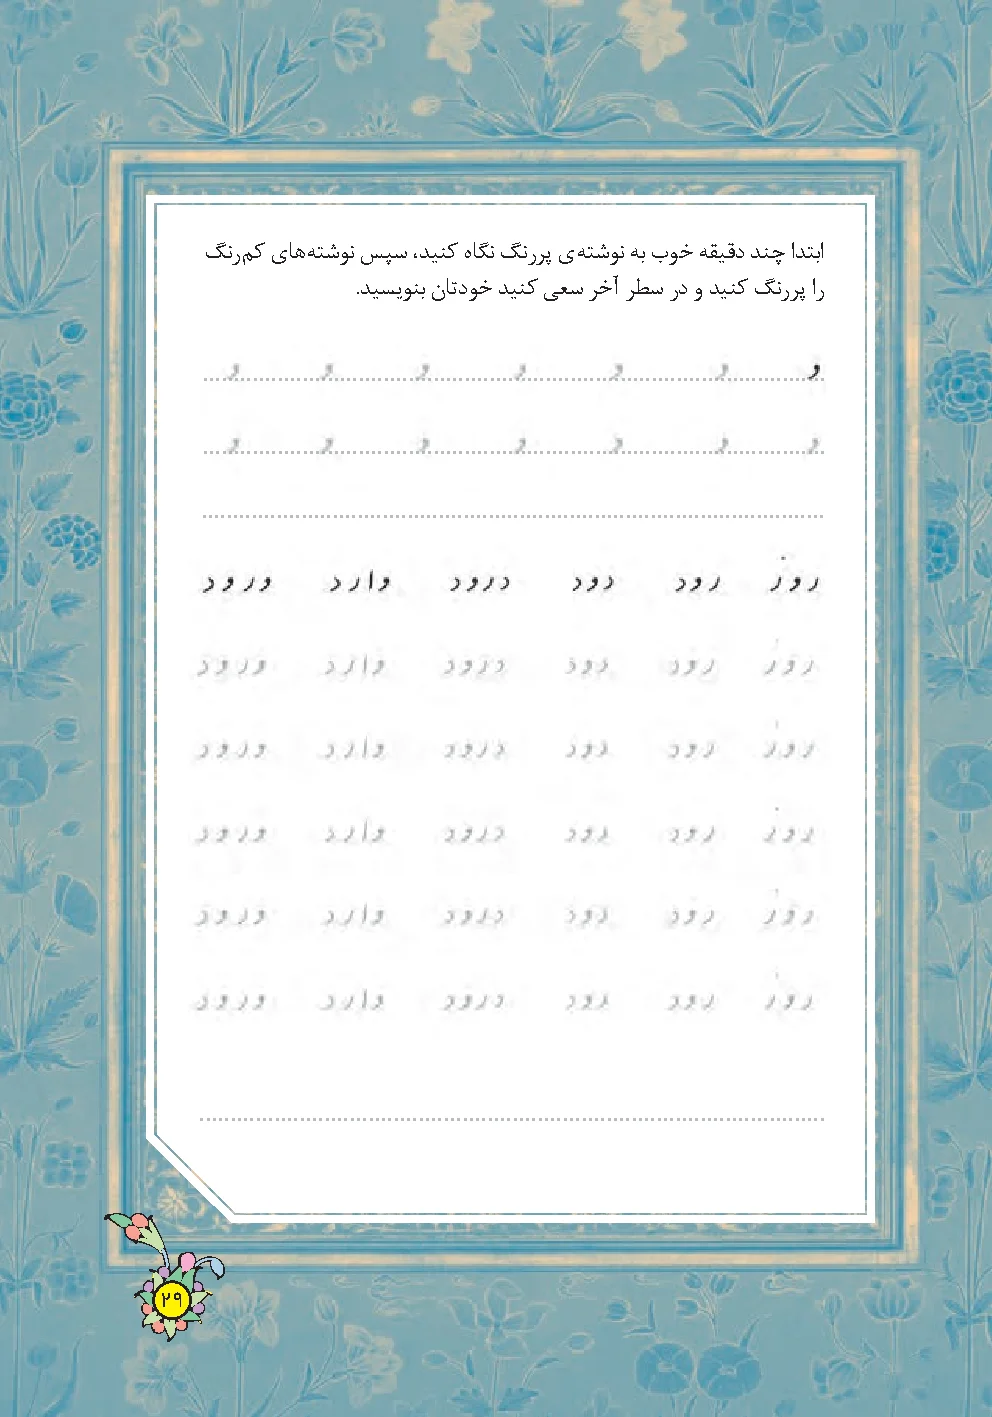 ابتدا چند دقیقه خوب به نوشته‌ی پررنگ نگاه کنید، سپس نوشته‌های کم‌رنگ
را پررنگ کنید و در سطر آخر سعی کنید خودتان بنویسید.
و و و و و و و
و و و و و و و
روز رود دود درود وارد ورود
روز رود دود درود وارد ورود
روز رود دود درود وارد ورود
روز رود دود درود وارد ورود
روز رود دود درود وارد ورود
روز رود دود درود وارد ورود
۲۹